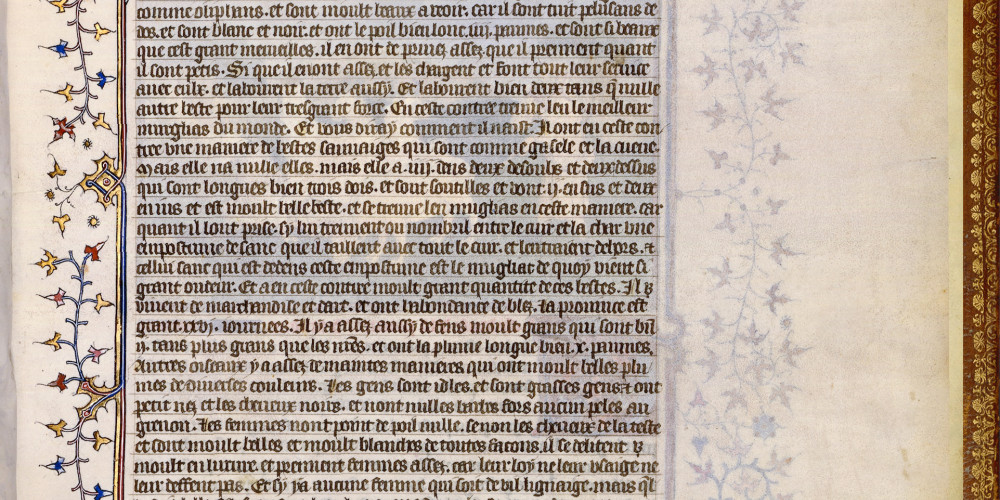 comme oliphans. et sont moult beaux a veoir. car il sont tuit pelu sans le
dos. et sont blanc et noir. et ont le poil bien lonc .iiij. paumes. et sont si beaux
que cest grant meruelles. il en ont de priuez assez que il prennent quant
il sont petis. Si que il en ont assez. et les chargent et font tout leur seruice
auec eulx. et labourent la terre aussy. Et labourent bien deux tans q̄ nulle
autre beste pour leur tres grant force. En ceste contree treuue len le meilleur
mugliaz du monde. Et vous diray comment il naist. Il ont en ceste con
tree vne maniere de bestes sauuaiges qui sont comme gasele et la cueue.
Mais elle na nulle elles. mais elle a .iiij. dens deux desoubs et deux dessus
qui sont longues bien trois dois. et sont soutilles et vont .ij. en sus et deux
en ius et est moult belle beste. et se treuue len muglias en ceste maniere. car
quant il lont prise. sy lui treuuent ou nombril entre le cuir et la char vne
empostume de sanc que il taillent auec tout le cuir. et lentraient dehors. et
cellui sanc qui est dedens ceste empostume est le mugliat de quoy vient si
grant oudeur. Et a en ceste contree moult grant quantite de ces bestes. Il
viuent de marchandise et dart. et ont labondance de blez. La prouince est
grant .xxvj. iournees. Il y a assez aussy de fans moult grans qui sont bn̄
.ij. tans plus grans que les nr̄es. et ont la plume longue bien .x. paumes.
Autres oiseaux y a assez de maintes manieres qui ont moult belles plu
mes de diuerses couleurs. Les gens sont ydles. et sont grasses gens et ont
petit nez et les cheueux noirs. et nont nulles barbes fors aucun peles au
grenon. Les femmes nont point de poil nulle. se non les cheueux de la teste
et sont moult belles et moult blanches de toutes facons. il se delitent
moult en luxure. et prennent femmes assez. car leur loy ne leur vsaige ne
leur deffent pas. Et sy y a aucune femme qui soit de vil lignaige. mais q̄l